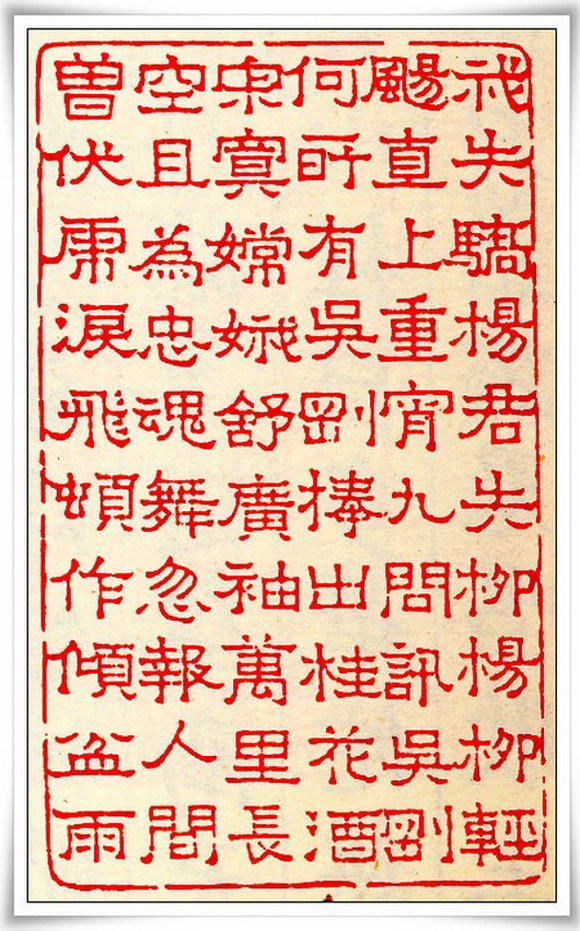 我失驕楊君失柳楊柳輕
颺直上重宵九問訊吳剛
何所有吳剛捧出桂花酒
寂寞嫦娥舒廣袖萬里長
空且為忠魂舞忽報人間
曾伏虎淚飛頓作傾盆雨